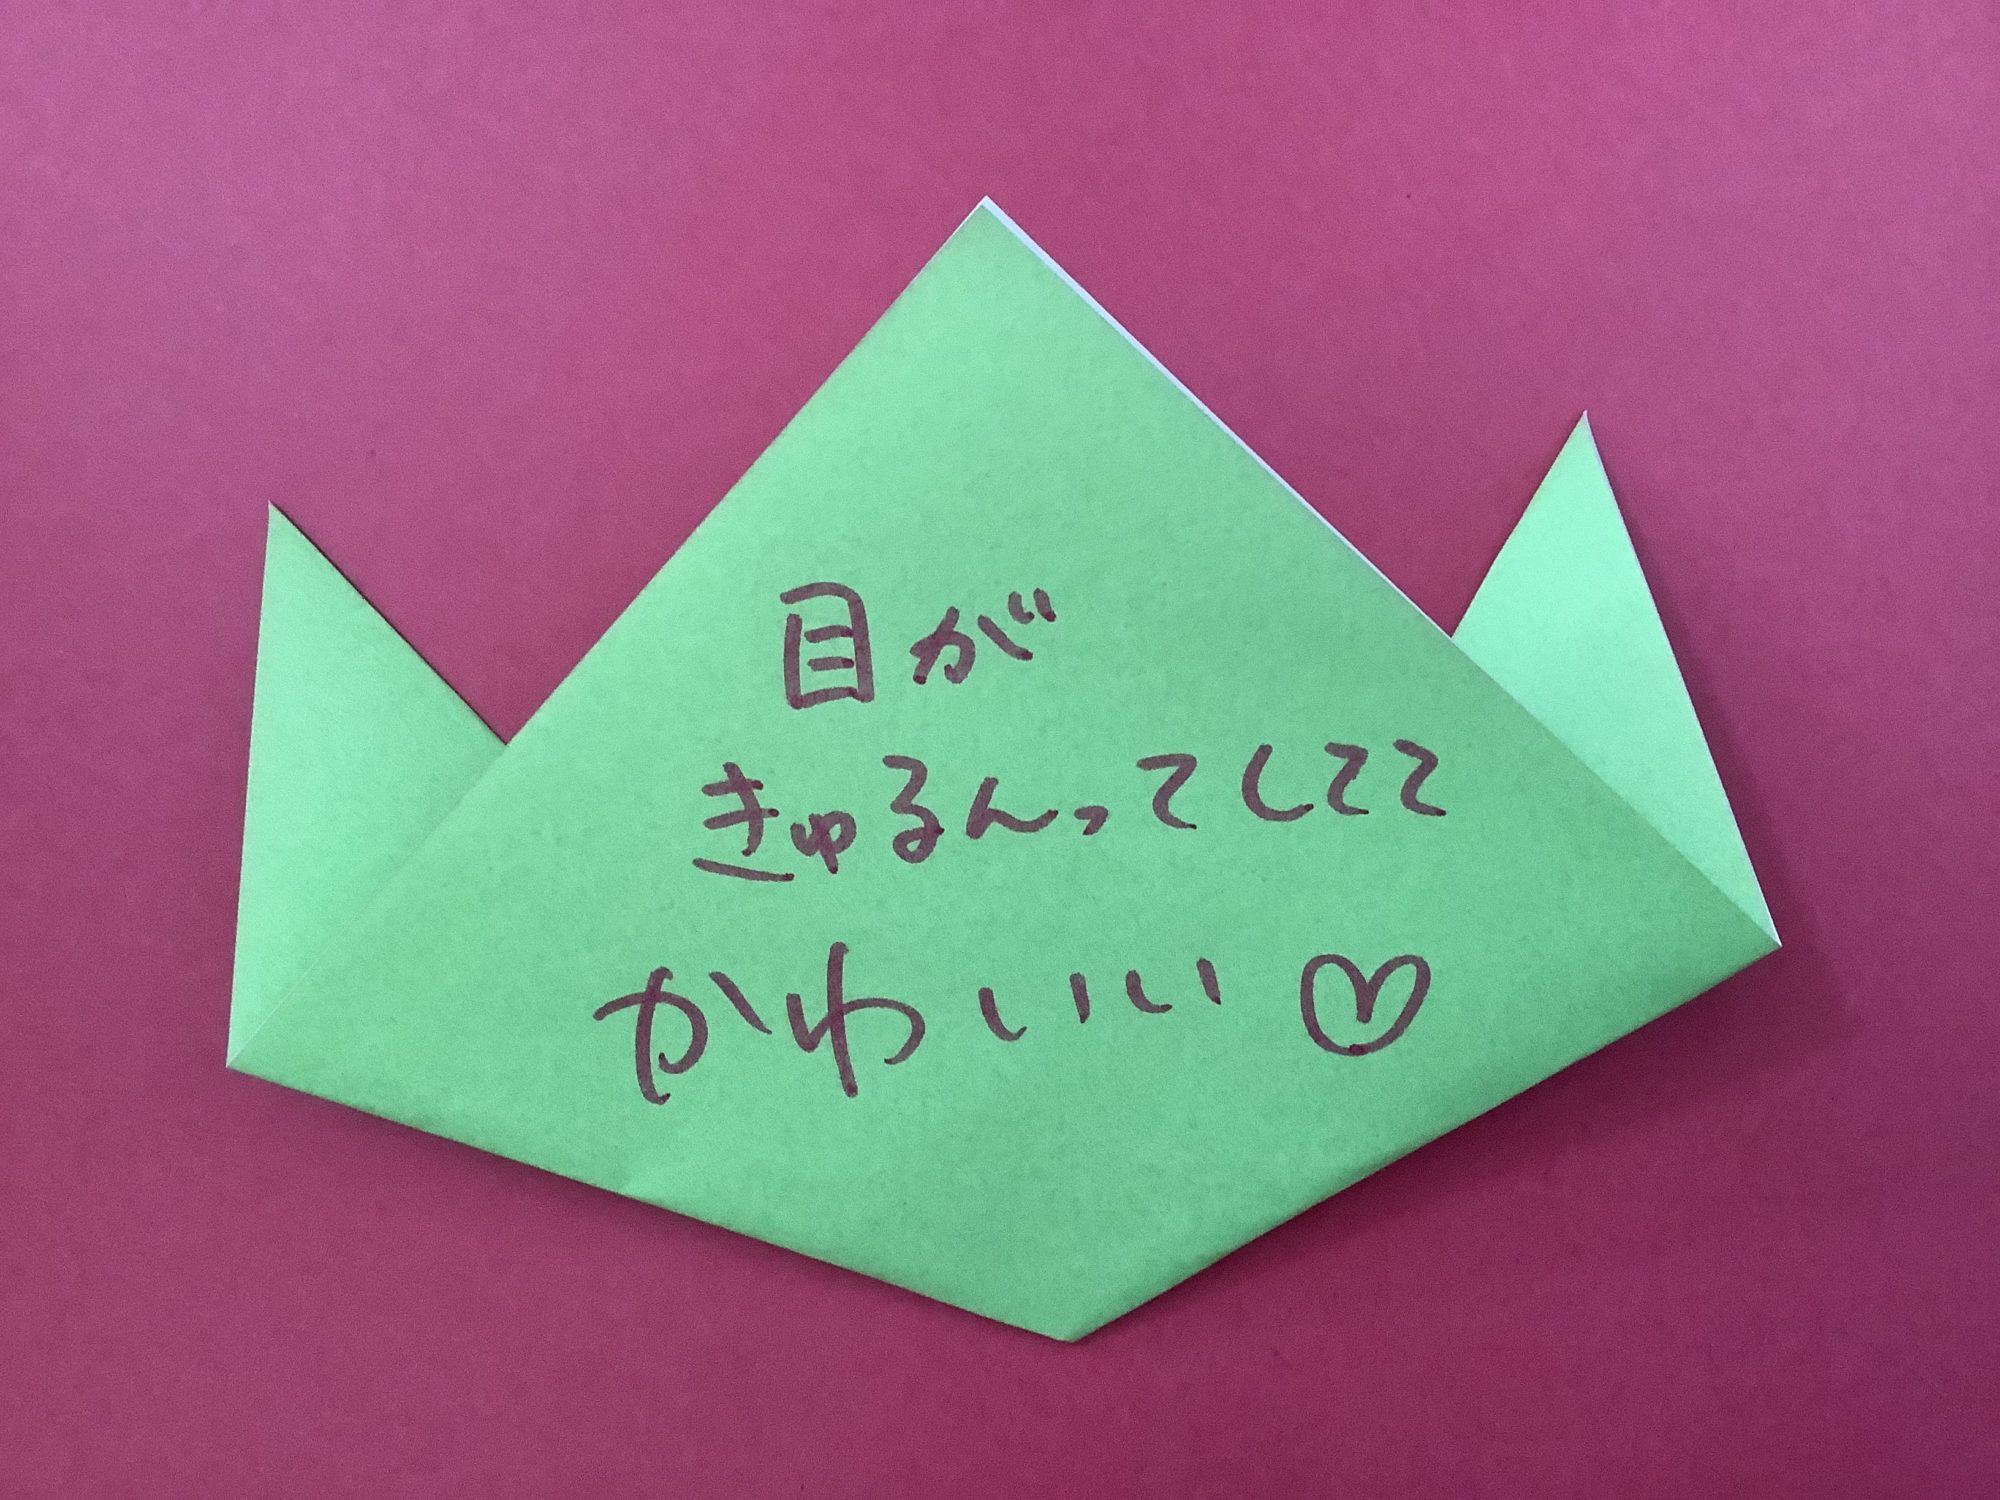 目が
きゅるんってしてて
かわいい♡